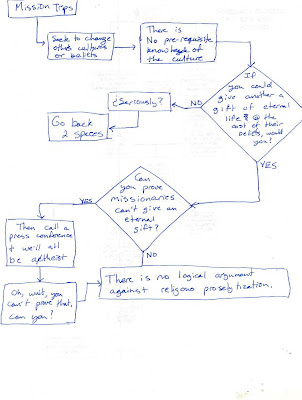 Mission Trips
Seek to change
other cultures
or beliefs
There is
No pre-requisite
knowledge of
the culture
If
you could
give another a
gift of eternal
life @ the
cost of their
beliefs, would
you?
NO
¿Seriously?
Go back
2 spaces
YES
Can
you prove
missionaries
can't give an
eternal
gift?
YES
Then call a
press conference
& we'll all
be atheist
NO
Oh, wait, you
can't prove that,
can you?
There is no logical argument
against religious proselytization.